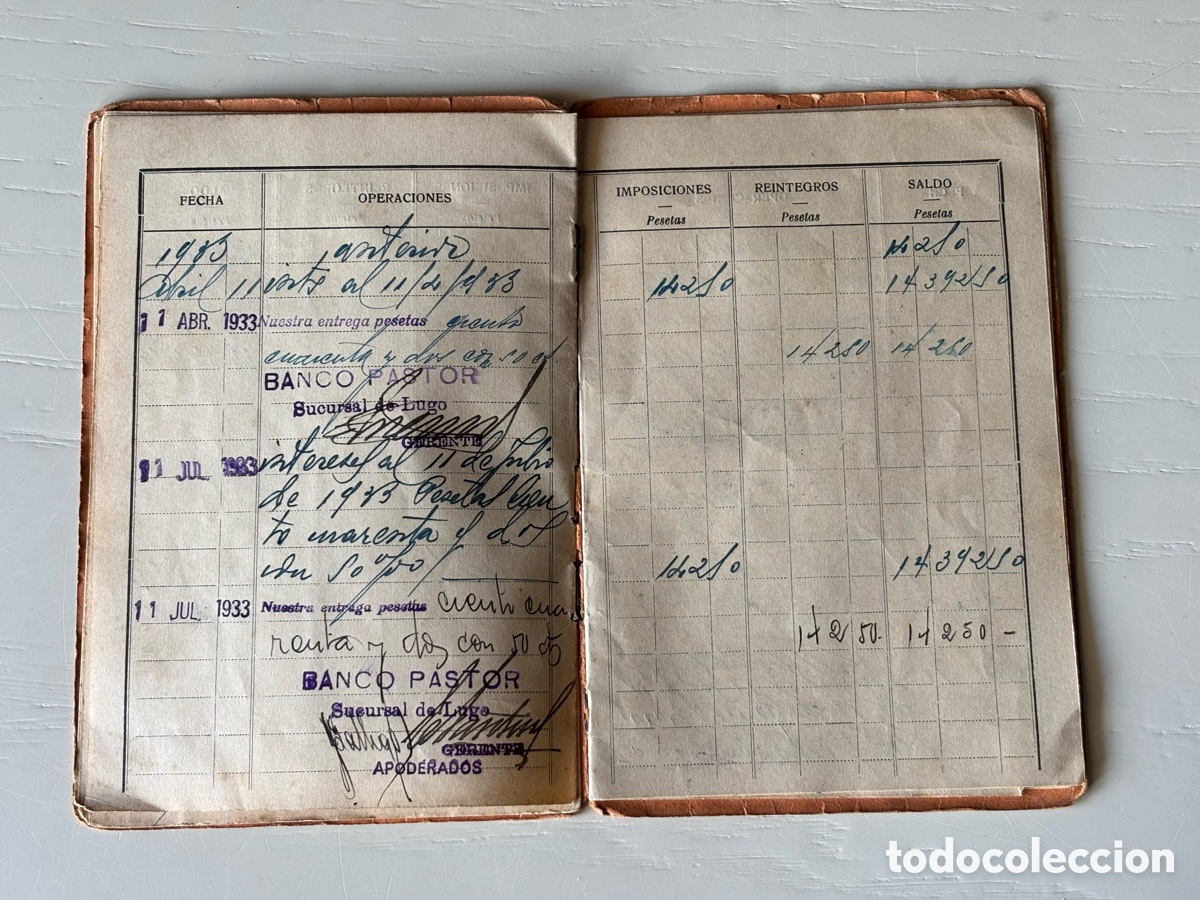 FECHA OPERACIONES IMPOSICIONES REINTEGROS SALDO
Pesetas Pesetas Pesetas
1933 anterior 14250
Abril 11 ints al 11/4/1933 14250 1439250
11 ABR. 1933 Nuestra entrega pesetas ciento
cuarenta y dos con 50 cts 14250 14250
BANCO PASTOR
Sucursal de Lugo
GERENTE
11 JUL. 1933 intereses al 11 de Julio
de 1933 Pesetas Cien
to cuarenta y dos
con 50 % 14250 1439250
11 JUL. 1933 Nuestra entrega pesetas ciento cua
renta y dos con 50 cts 14250.- 14250 -
BANCO PASTOR
Sucursal de Lugo
GERENTE
APODERADOS
todocoleccion